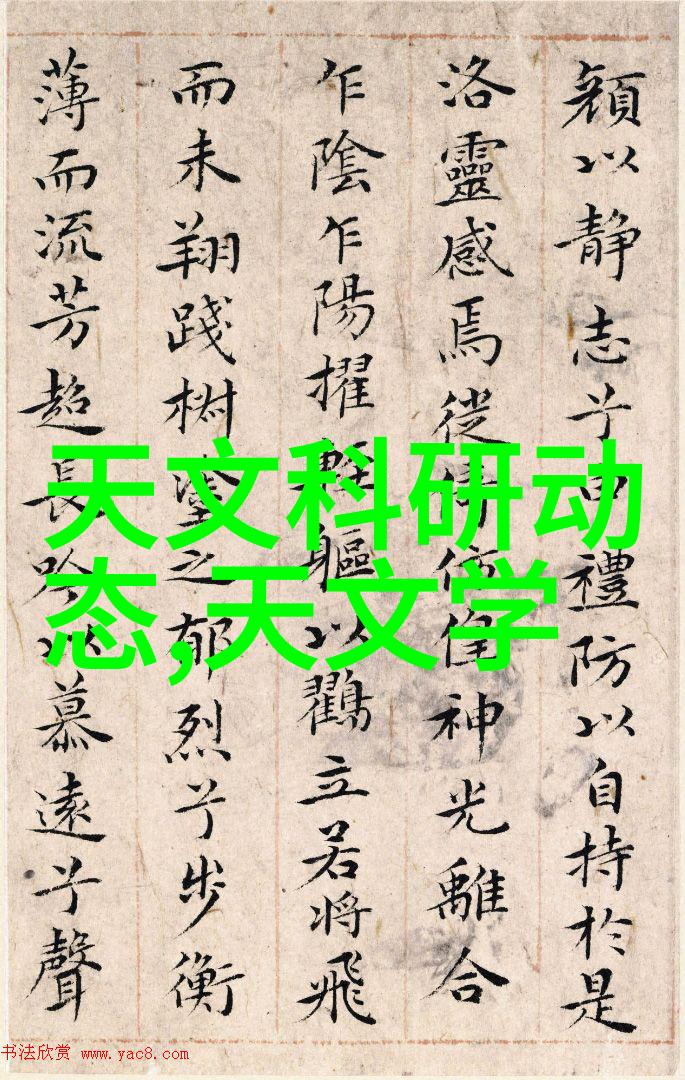 顏以静志兮申禮防以自持於是
洛靈感焉從倚彷徨神光離合
乍陰乍陽擢輕軀以鸖立若將飛
而未翔踐椒塗之郁烈兮步衡
薄而流芳超長吟以慕遠兮聲
天文科研动
态,天文学
书法欣赏 www.yac8.com